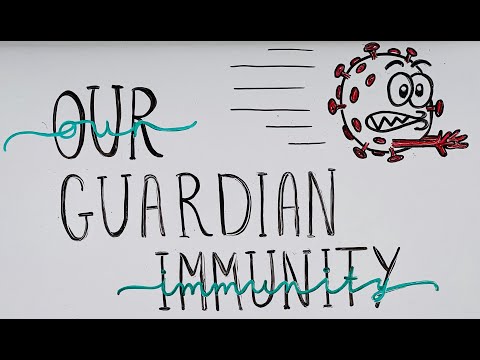 OUR
our
GUARDIAN
IMMUNITY
immunity